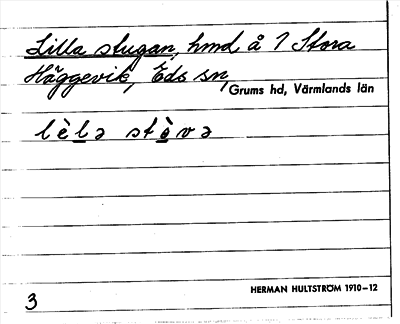 Lilla stugan, hmd å 1 Stora
Häggevik, Eds sn,
Grums hd, Värmlands län
lὲlə stòvə
HERMAN HULTSTRÖM 1910–12
3